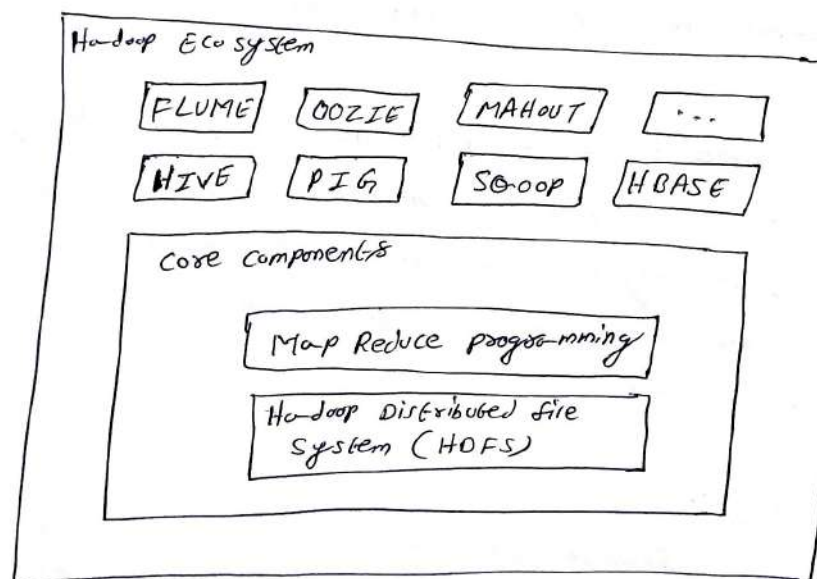 Hadoop Ecosystem
FLUME OOZIE MAHOUT ...
HIVE PIG SQOOP HBASE
Core Components
Map Reduce programming
Hadoop Distributed file
System (HDFS)